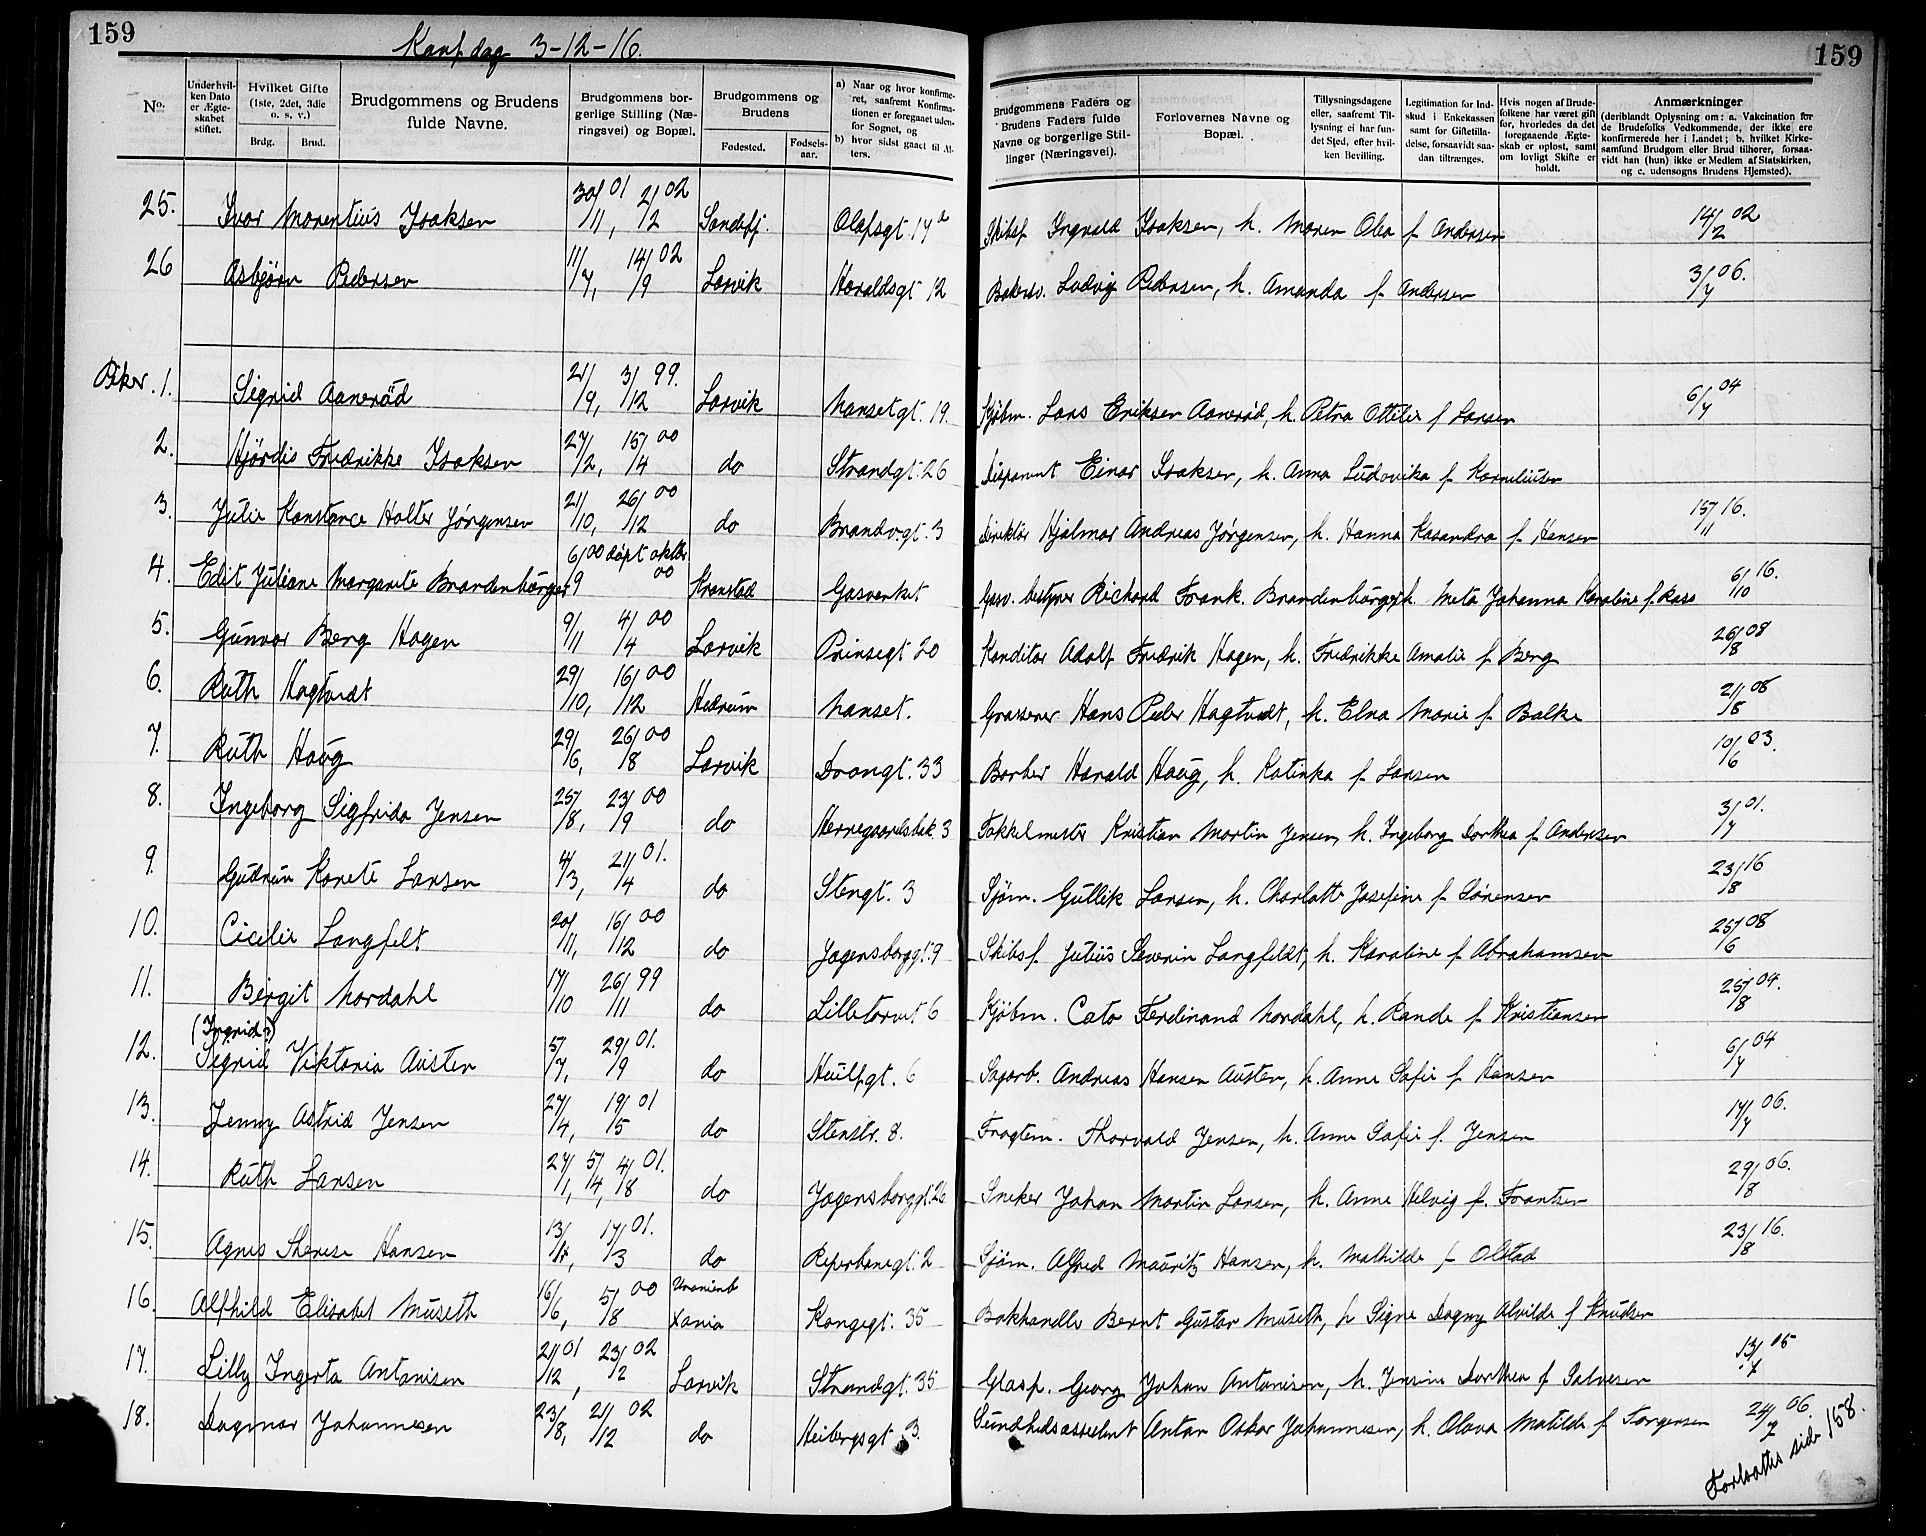 159
Konf dag 3-12-16.
No:
Underhvilken Dato er Ægteskabet stiftet.
Hvilket Gifte (1ste, 2det, 3die o. s. v.)
Brdg. Brud.
Brudgommens og Brudens fulde Navne.
Brudgommens borgerlige Stilling (Næringsvei) og Bopæl.
Brudgommens og Brudens
Fødested. Fødselsaar.
a) Naar og hvor konfirmeret, saafremt Konfirmationen er foregaaet udenfor Sognet, og
b) hvor sidst gaact til Alters.
25. Ivar Morentius Isaksen 30/11 01, 2/12 02 Sandefj. Olafsgt. 14a
26 Asbjørn Pedersen 11/7, 14/9 02 Larvik Haraldsgt 12
Piker. 1. Sigrid Aanerød 21/9, 3/12 99. Larvik Nansetgt. 19.
2. Hjørdis Fredrikke Isaksen 27/2, 15/4 00 do Strandgt. 26
3. Julie Konstance Holter Jørgensen 21/10, 26/12 00 do Brandvgt. 3
4. Edit Juliane Margarete Brandenbürger 6/9 00 døpt oktbr. 00 Gasverket
5. Gunvor Berg Hagen 9/11 4/4 00 Larvik Prinsegt 20
6. Ruth Hagtvedt 29/10, 16/12 00 Hedrum Nanset.
7. Ruth Haug 29/6, 26/8 00 Larvik Drongt. 33
8. Ingeborg Sigfrida Jensen 25/8, 23/9 00 do Herregaardsbak. 3
9. Gudrun Karete Larsen 4/3, 21/4 01. do Stengt. 3
10. Cicilie Langfelt 20/11, 16/12 00 do Jegersborggt. 9
11. Birgit Nordahl 17/10 26/11 99 do Lilletorvet 6
(Ingrid?)
12. Sigrid Viktoria Austen 5/7, 29/9 01. do Huulfgt. 6
13. Jenny Astrid Jensen 27/4, 19/5 01 do Stenstr. 8.
14. Ruth Larsen 27/1, 5/4, 4/8 01. do Jegersborggt. 26
15. Agnes Therese Hansen 17/3 01. do Reperbanegt. 2
16. Alfhild Elisabet Museth 16/6, 5/8 00 Uranienb Xania Kongegt. 35
17. Lilly Ingerta Antonisen 21/12 01, 23/2 02 Larvik Strandgt. 35
18. Dagmar Johannesen 23/8, 21/12 02 do Heibergsgt 3.
159
Brudgommens Faders og Brudens Faders fulde Navne og borgerlige Stillinger (Næringsvei).
Forlovernes Navne og Bopæl.
Tillysningsdagene eller, saafremt Tillysning ei har fundet Sted, efter hvilken Bevilling.
Legitimation for Indskud i Enkekassen samt for Giftetilladelse, forsaavidt saadan tiltrænges.
Hvis nogen af Brudefolkene har været gift før, hvorledes da det foregaaende Ægteskab er opløst, samt om lovligt Skifte er holdt.
Anmærkninger
(deriblandt Oplysning om: a. Vakcination for de Brudefolks Vedkommende, der ikke ere konfirmerede her i Landet; b. hvilket Kirkesamfund Brudgom eller Brud tilhører, forsaavidt han (hun) ikke er Medlem af Statskirken, og c. udensogns Brudens Hjemsted).
Skibsf Ingvald Isaksen, h. Maren Olea f Andersen 14/2 02
Ludvig Pedersen, h. Amanda f Andersen 3/7 06.
Kjøbm. Lars Eriksen Aanerød, h. Petra Ottilie f Larsen 6/7 04
Disponent Einar Isaksen, h. Anna Ludovika f Korneliusen
Direktør Hjalmar Andreas Jørgensen, h. Hanna Kasandra f Hansen 15/11 16.
Gasv. bestyrer Richard Frank. Brandenbürger h. Meta Johanna Karoline f. Rass 6/10 16.
Konditor Adolf Fredrik Hagen, h. Fredrikke Amalie f Berg 26/8 08
Hans Peder Hagtvedt, h. Elna Marie f Balke 21/8 08
Barber Harald Haug, h. Katinka f Larsen 10/6 03.
Kristian Martin Jensen, h. Ingeborg Dorthea f Andersen 3/7 01.
Sjøm. Gullik Larsen, h. Charlotte Josefine f Sørensen 23/8 16
Skibsf Julius Severin Langfeldt, h. Karoline f Abrahamsen 25/6 08
Kjøbm. Cato Ferdinand Nordahl, h. Rande f Kristiansen 25/8 04.
Sagarb. Andreas Hansen Austen, h. Anne Sofie f Hansen 6/7 04
Fragtem. Thorvald Jensen, h. Anne Sofie f. Jensen 17/7 06.
Sneker Johan Martin Larsen, h. Anne Helvig f. Frantsen 29/8 06.
Sjøm. Alfred Mauritz Hansen, h. Mathilde f Olstad 23/8 16.
Bokhandler Bernt Gustav Museth, h Signe Dagny Alvilde f Knudsen
Glasp. Georg Johan Antonisen, h. Jensine Dorthea f Salvesen 13/7 05
Sundhedsassistent Anton Oskar Johannesen, h. Olava Matilde f Torgersen 24/7 06.
Fortsættes side 158.